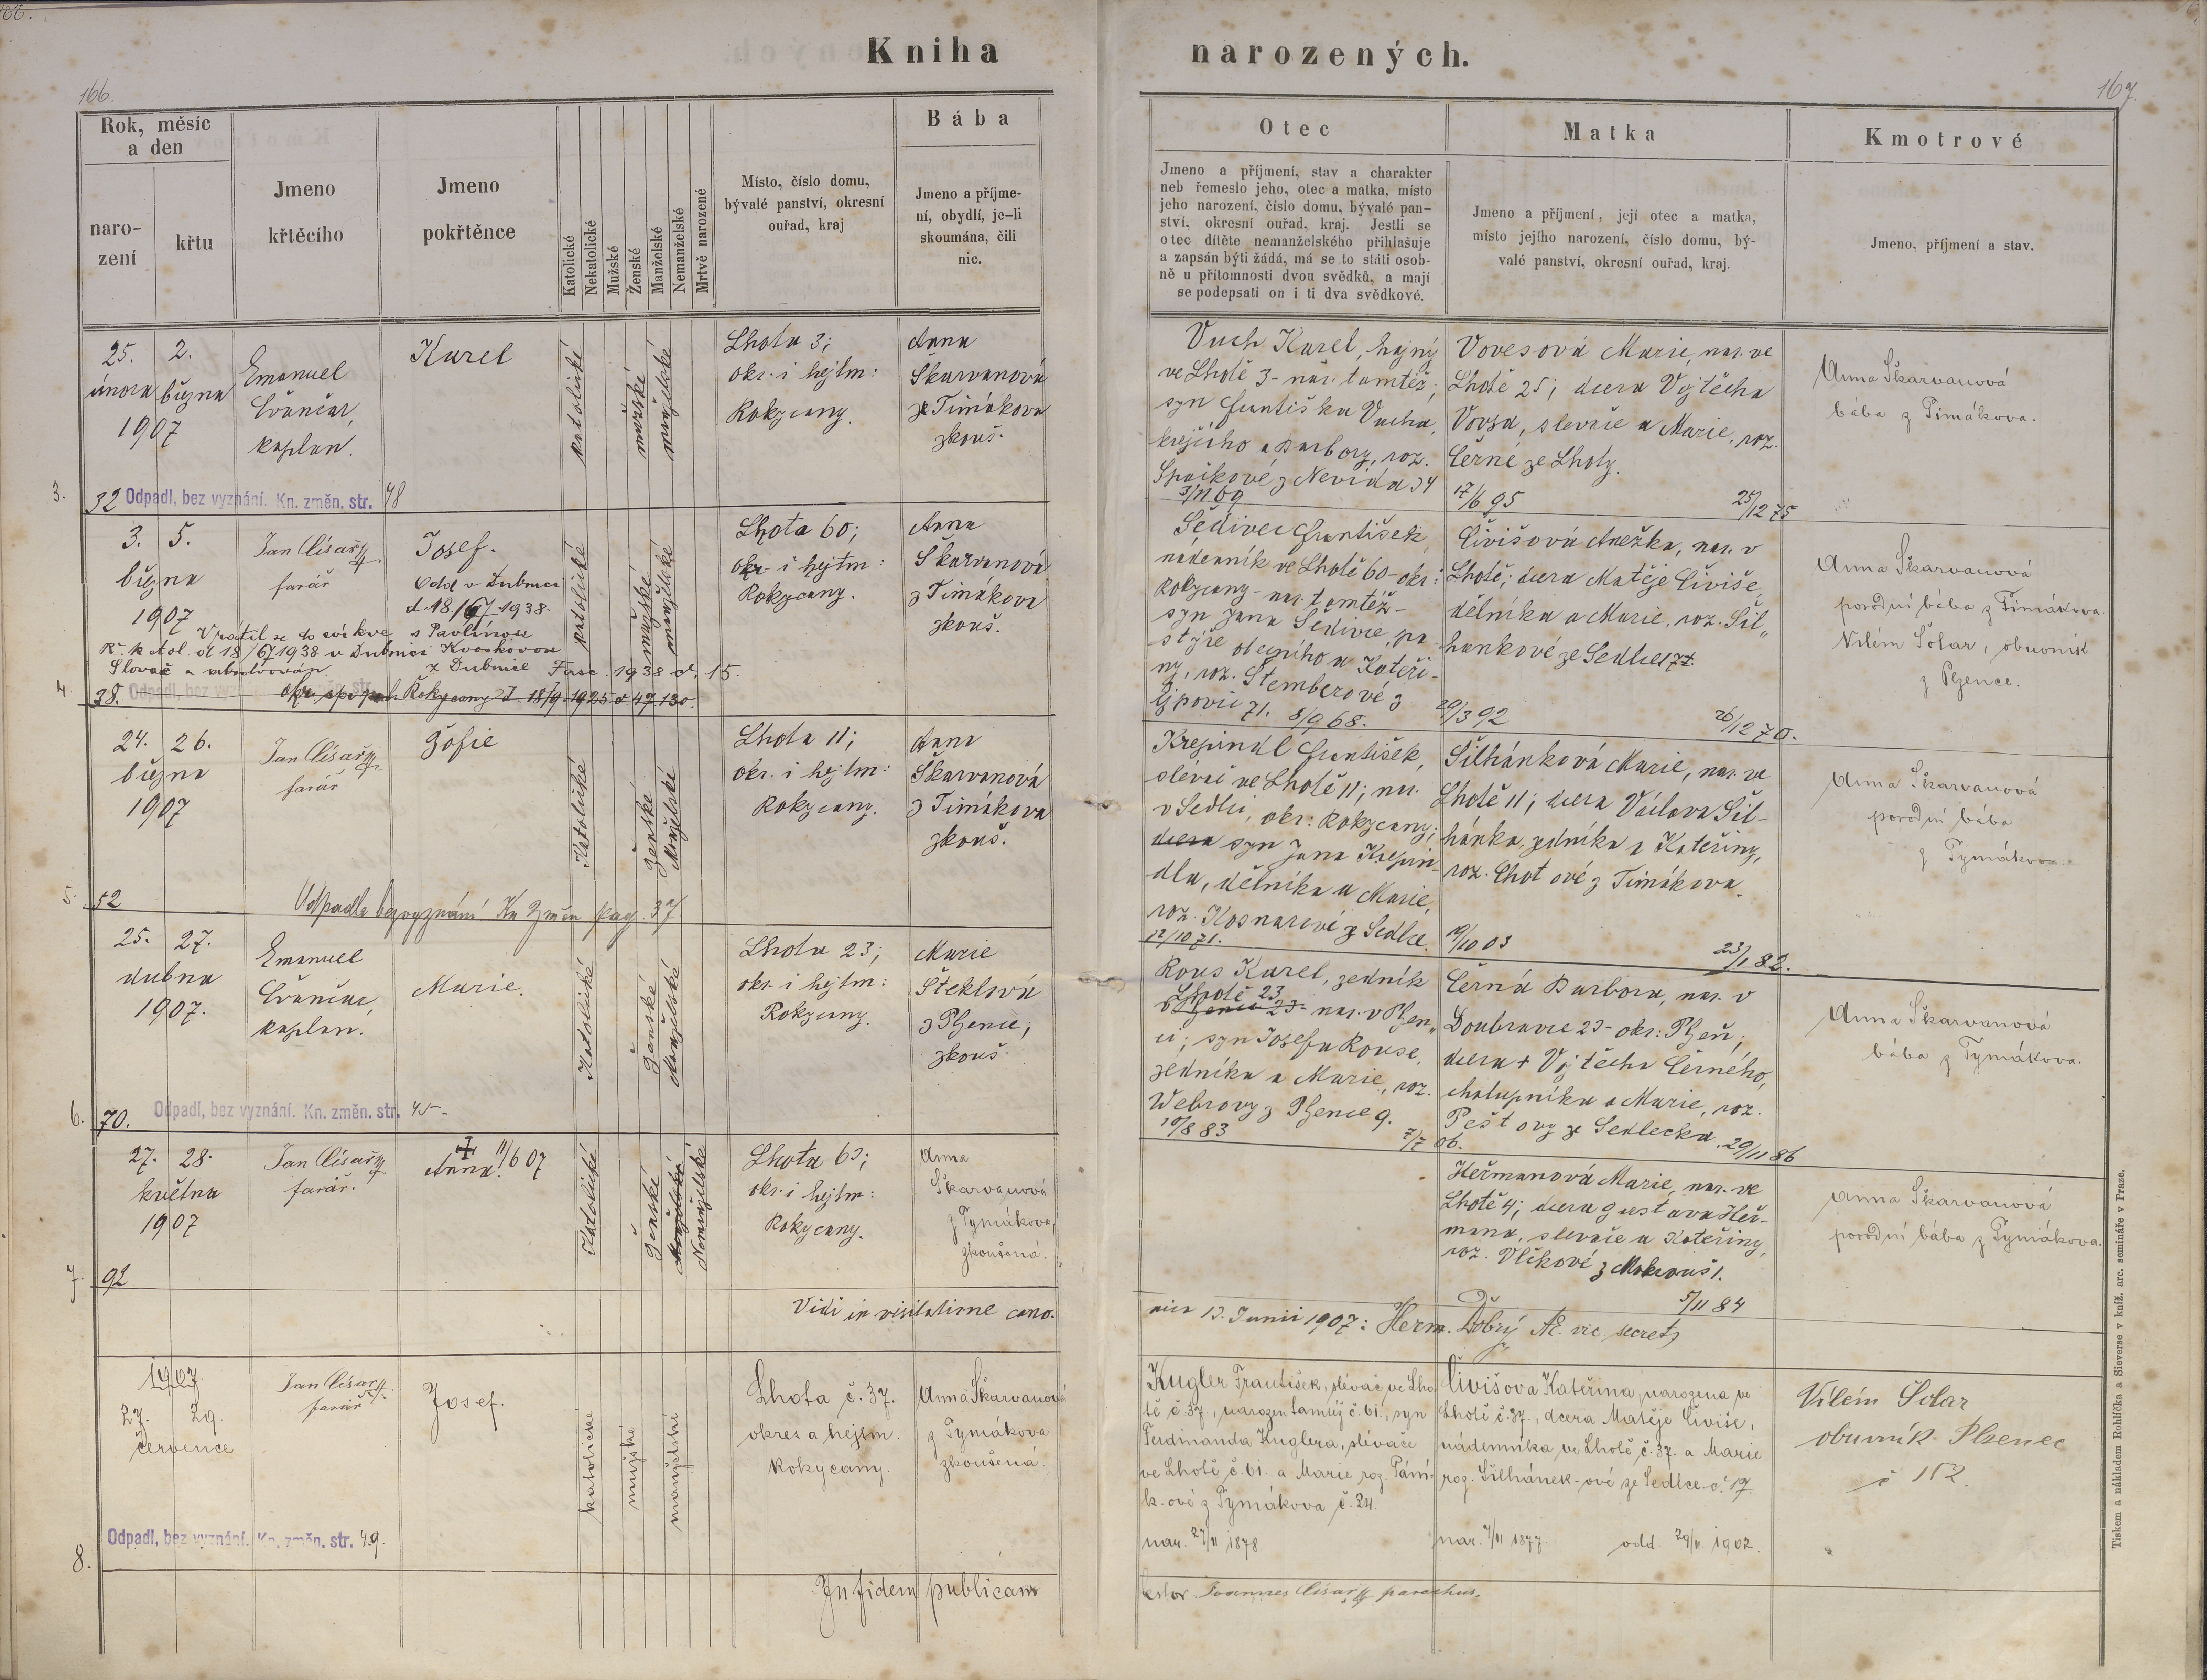 166.
Kniha narozených.
166.
167.
Rok, měsíc
a den
naro-
zení
křtu
Jmeno
křtěcího
Jmeno
pokřtěnce
Katolické
Nekatolické
Mužské
Ženské
Manželské
Nemanželské
Mrtvě narozené
Místo, číslo domu,
bývalé panství, okresní
ouřad, kraj
Bába
Jmeno a příjme-
ní, obydlí, je-li
skoumána, čili
nic.
Otec
Jmeno a příjmení, stav a charakter
neb řemeslo jeho, otec a matka, místo
jeho narození, číslo domu, bývalé pan-
ství, okresní ouřad, kraj. Jestli se
otec dítěte nemanželského přihlašuje
a zapsán býti žádá, má se to státi osob-
ně u přítomnosti dvou svědků, a mají
se podepsati on i ti dva svědkové.
Matka
Jmeno a příjmení, její otec a matka,
místo jejího narození, číslo domu, bý-
valé panství, okresní ouřad, kraj.
Kmotrové
Jmeno, příjmení a stav.
25. 2.
února března
1907
Emanuel
kaplan.
Karel
katolické
mužské
manželské
Lhota 3;
okr. i hejtm:
Rokycany.
Anna
Škarvanová
z Timákova
zkouš.
Vach Karel, hajný
ve Lhotě 3 - nar. tamtéž;
syn Františka Vacha,
krejčího a Barbory, roz.
Spačkové z Nevida 34
3/11 69
Vovesová Marie, nar. ve
Lhotě 25; dcera Vojtěcha
Vovsa, slevače a Marie, roz.
Černé ze Lhoty.
17/6 95 25/12 75
Anna Škarvanová
bába z Timákova.
3.
32 Odpadl, bez vyznání. Kn. změn. str. 48
3. 5.
března
1907
Jan Císař
farář
Josef.
Odd v Dubnici
d. 18/67 1938
Vrátil se do církve s Pavlínou
Ř. kátol. dl 18/67 1938 v Dubnici Kvoskovou
z Dubnice Fasc. 1938 č. 15.
katolické
mužské
manželské
Lhota 60;
okr. i hejtm:
Rokycany.
Anna
Škarvanová
z Timákova
zkouš.
Šedivec František,
nádenník ve Lhotě 60 - okr:
Rokycany - nar. tamtéž -
syn Jana Šedivce, pa-
stýře obecního a Kateři-
ny, roz. Štemberové z
Ejpovic 71. 8/9 68.
Čivišová Anežka, nar. v
Lhotě; dcera Matěje Čiviše,
dělníka a Marie, roz. Šil„
hankové ze Sedlce 17.
20/3 92 26/12 70.
Anna Škarvanová
porodní bába z Timákova.
Vilém Šolar, obuvník
z Plzence.
4.
38. Odpadl, bez vyznání. Kn. změn. str.
Rokycany d. 18/9 1925 č 47.130.
24. 26.
března
1907
Jan Císař
farář
Žofie
Katolické
ženské
Manželské
Lhota 11;
okr. i hejtm:
Rokycany.
Anna
Škarvanová
z Timákova
zkouš.
Krejnidl František,
slévač ve Lhotě 11; nar.
v Sedlci, okr: Rokycany;
dcera syn Jana Krejni-
dla, dělníka a Marie,
roz. Kosnarové z Sedlce.
12/10 71.
Šilhánková Marie, nar. ve
Lhotě 11; dcera Václava Šil-
hánka, zedníka a Kateřiny,
roz. Chotové z Timákova.
19/10 03 23/1 82.
Anna Škarvanová
porodní bába
z Tymákova
5.
52 Odpadla bezvyznání Kn Změn pag. 37
25. 27.
dubna
1907.
Emanuel
kaplan.
Marie.
Katolické
ženské
Manželské
Lhota 23;
okr. i hejtm:
Rokycany.
Marie
Šteklová
z Plzence;
zkouš.
Rous Karel, zedník
Lhotě 23
v Plzenci 23 - nar. v Plzen„
ci; syn Josefa Rouse,
zedníka a Marie, roz.
Webrovy z Plzence 9.
10/8 83 7/7 06.
Černá Barbora, nar. v
Doubravce 23 - okr: Plzeň;
dcera + Vojtěcha Černého,
chalupníka a Marie, roz.
Peštovy ze Sedlecka. 29/11 86
Anna Škarvanová
bába z Tymákova.
6.
70. Odpadl, bez vyznání. Kn. změn. str. 45 -
27. 28.
května
1907
Jan Císař
farář.
Anna. ✝ 11/6 07
Katolické
ženské
Manželské
Nemanželské
Lhota 63;
okr. i hejtm:
Rokycany.
Anna
Škarvanová
z Tymákova,
zkoušená.
Heřmanová Marie, nar. ve
Lhotě 4; dcera Gustava Heř-
mana, slevače a Kateřiny,
roz. Vlčkové z Mokrouš 1.
5/11 84
Anna Škarvanová
porodní bába z Tymákova.
7.
92
Vidi in visitatione cano-
nica 13. Junii 1907: Herm. Dobrý Ač. vic. secret
1907.
27. 29.
července
Jan Císař
farář
Josef.
katolické
mužské
manželské
Lhota č. 37.
okres a hejtm.
Rokycany.
Anna Škarvanová
z Tymákova
zkoušená.
Kugler František, slévač ve Lho-
tě č. 37, narozen tamtéž č. 61., syn
Ferdinanda Kuglera, slévače
ve Lhotě č. 61. a Marie roz. Pání-
k-ové z Tymákova č. 24.
nar. 27/11 1878
Čivišova Kateřina, narozena ve
Lhotě č. 37., dcera Matěje Čiviše,
nádenníka ve Lhotě č. 37. a Marie
roz. Šilhánek-ové ze Sedlce č. 17.
nar. 7/11 1877 odd. 24/11 1902.
Vilém Šolar
obuvník Plzenec
č 112.
8.
Odpadl, bez vyznání. Kn. změn. str. 49.
In fidem publicam
Joannes Císař parochus.
Tiskem a nákladem Rohlíčka a Sieverse v kníž. arc. semináře v Praze.